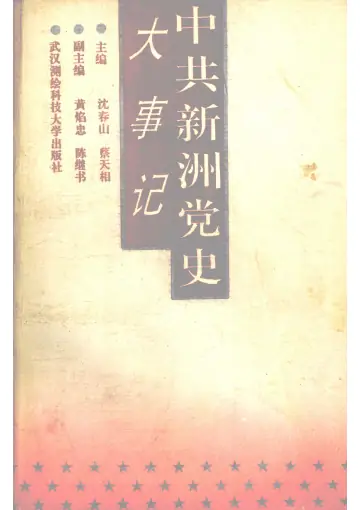 中共新洲党史
大事记
主编 沈春山 蔡天相
副主编 黄焰忠 陈继书
武汉测绘科技大学出版社